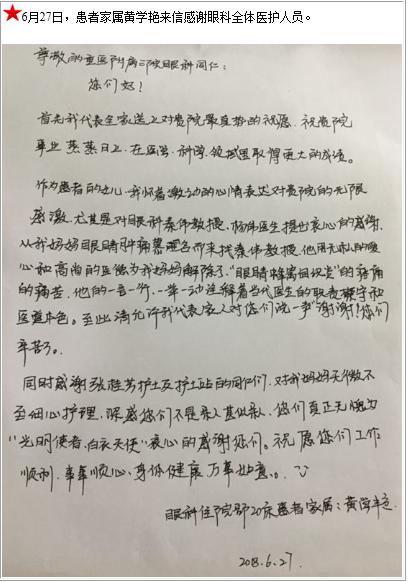 6月27日，患者家属黄学艳来信感谢眼科全体医护人员。
尊敬的重医附三院眼科同仁：
您们好！
首先我代表全家送上对贵院最真挚的祝愿．祝贵院
事业蒸蒸日上．在医学、科学、领域里取得更大的成绩。
作为患者的女儿，我怀着激动的心情表达对贵院的无限
感激．尤其是对眼科秦伟教授、杨伟医生提出衷心的感谢，
从我妈妈眼睛肿痛慕名而来找秦伟教授，他用无私的爱
心和高尚的医德为我妈妈解除了"眼睛蜂窝组织炎"的疼痛
的痛苦．他的一言一行、一举一动诠释着当代医生的职责操守和
医道本色。至此请允许我代表家人对你们说一声"谢谢！您们
辛苦了。
同时感谢张桂芳护士及护士站的同仁们．对我妈妈无微不
至细心护理，深感您们不是亲人甚似亲人．您们真正无愧为
"光明使者，白衣天使"衷心的感谢您们。祝愿您们工作
顺利．事事顺心、身体健康万事如意。
眼科住院部20床患者家属：黄学艳
2018.6.27.